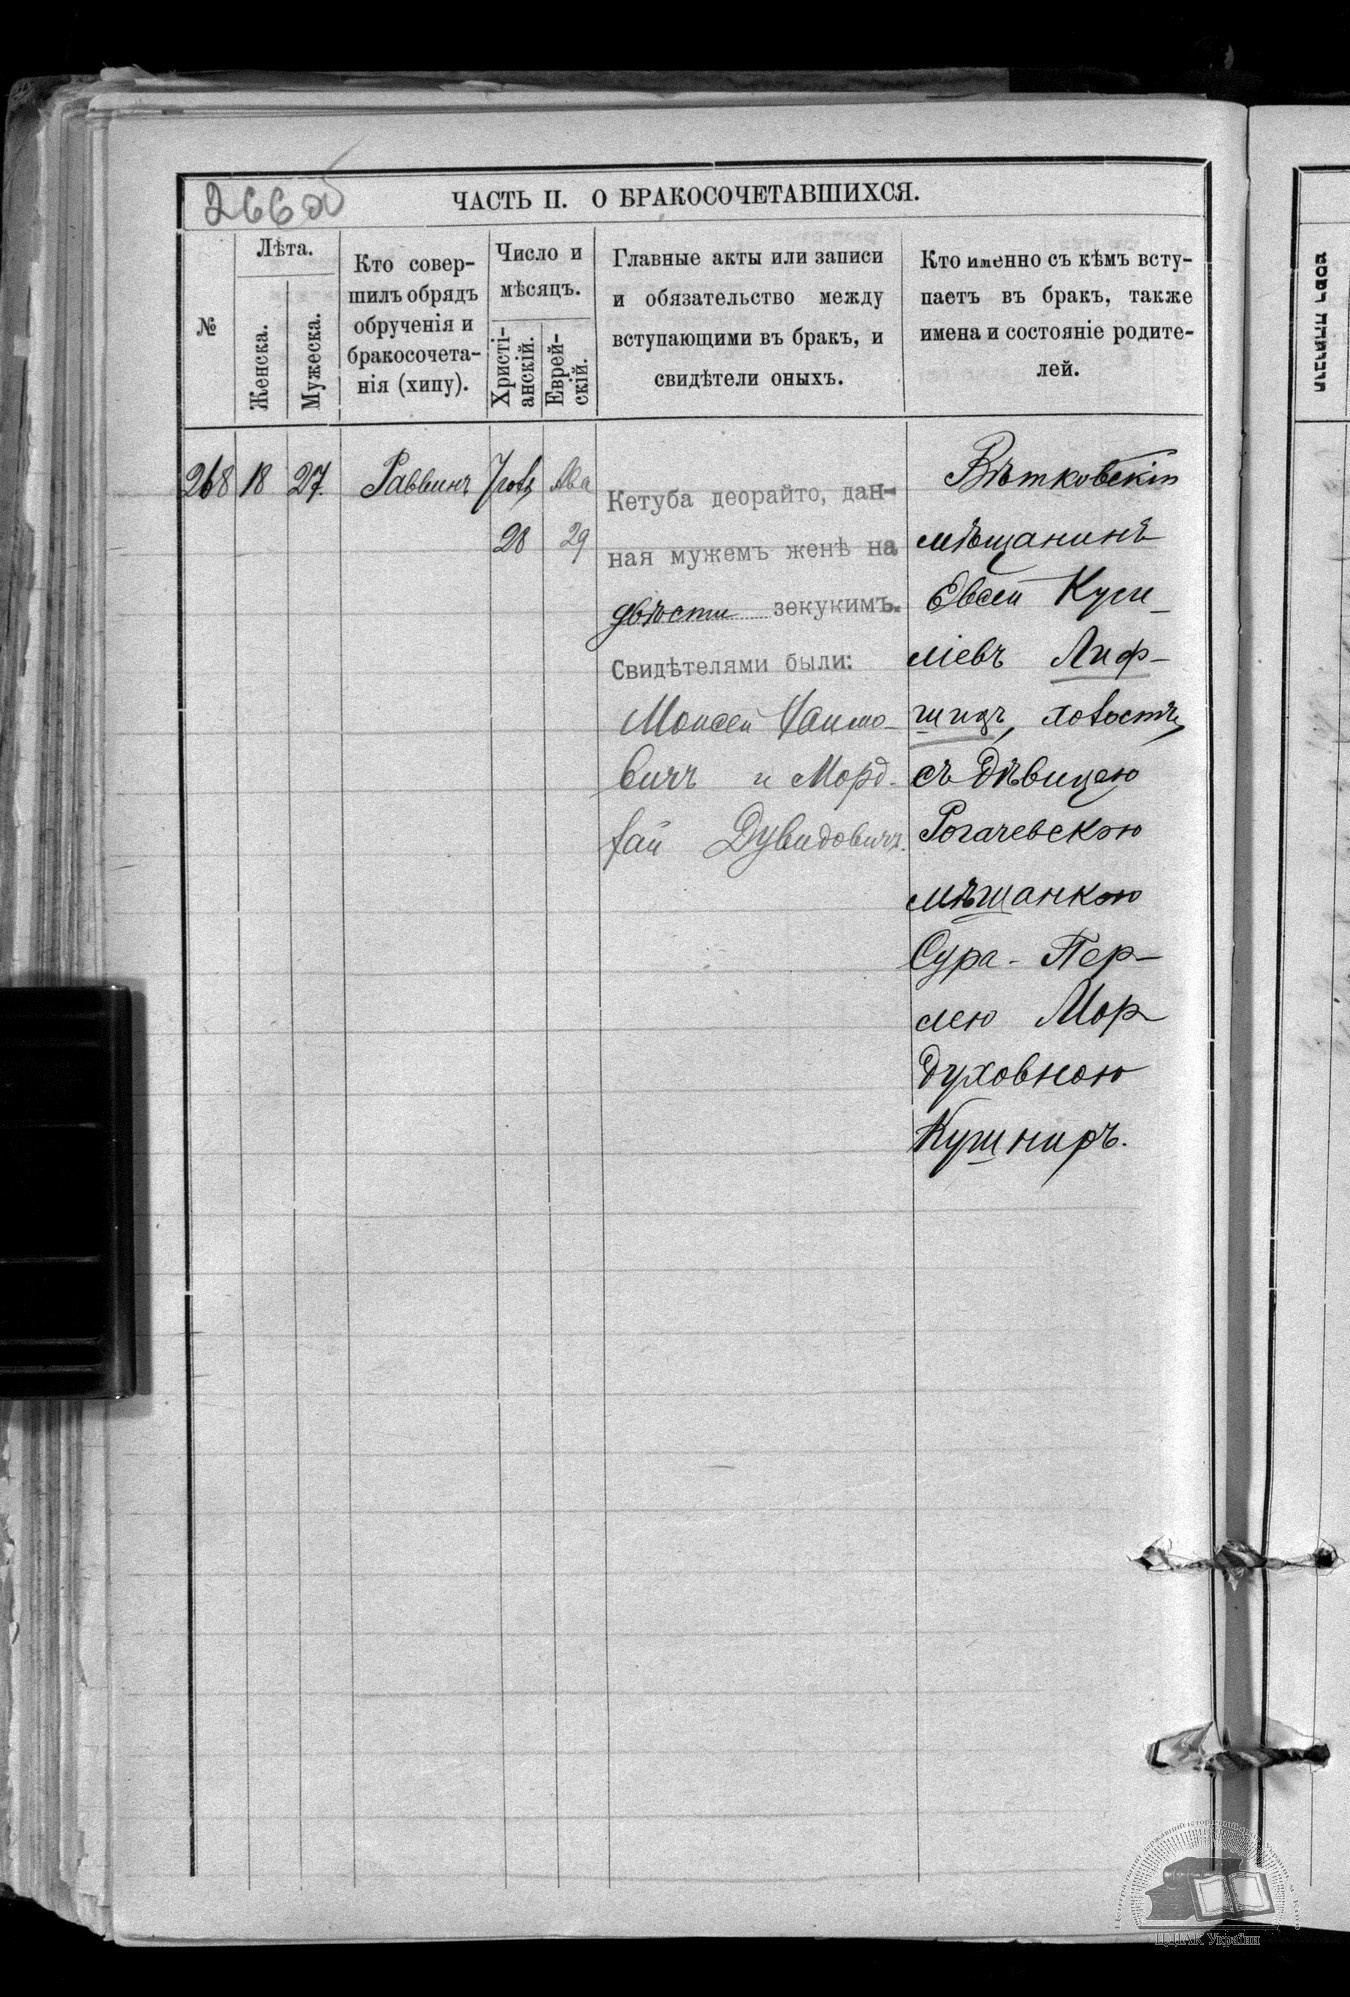 266об
ЧАСТЬ II. О БРАКОСОЧЕТАВШИХСЯ.
№
Лѣта.
Женска.
Мужеска.
Кто совер-
шилъ обрядъ
обрученія и
бракосочета-
нія (хипу).
Число и
мѣсяцъ.
Христі-
анскій.
Еврей-
скій.
Главные акты или записи
и обязательство между
вступающими въ бракъ, и
свидѣтели оныхъ.
Кто именно съ кѣмъ всту-
паетъ въ бракъ, также
имена и состояніе родите-
лей.
268
18
27.
Раввинъ
28
Ава
29
Кетуба деорайто, дан-
ная мужемъ женѣ на
двѣсти зекукимъ.
Свидѣтелями были:
Моисей Хаимо-
вичъ и Морд-
хай Дувидовичъ.
Вѣтковскій
мѣщанинъ
Евсей Куси-
ліевъ Лиф-
шицъ, холостъ,
съ дѣвицею
Рогачевскою
мѣщанкою
Сура-Пер-
лею Мор
духовною
Кушниръ.
ЦДІАК України